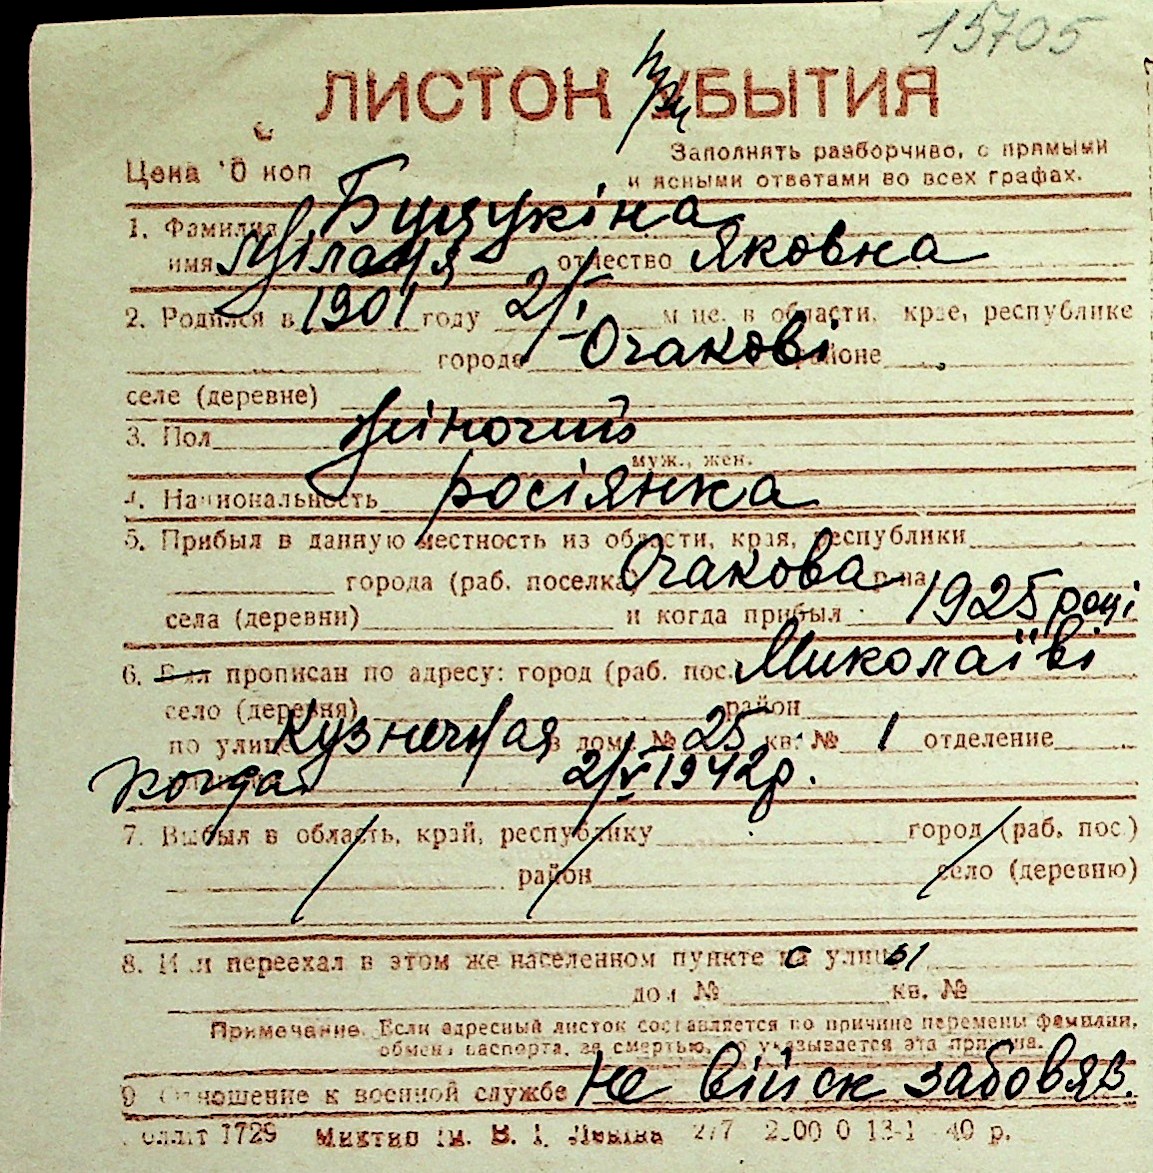 15705
ЛИСТОК при УБЫТИЯ
Цена 10 коп Заполнять разборчиво, с прямыми
и ясными ответами во всех графах.
1. Фамилия
имя Міланія отчество Яковна
2. Родился в 1901 году 2/I м-це. в области, крае, республике
городе Очакові районе
селе (деревне)
3. Пол жіночий
муж., жен.
4. Национальность росіянка
5. Прибыл в данную местность из области, края, республики
города (раб. поселка) Очакова р-на
села (деревни) и когда прибыл 1925 році
6. Был прописан по адресу: город (раб. пос. Миколаїві
село (деревня) район
по улице Кузнечная в доме № 25 кв. № 1 отделение
когда 2/V 1942р.
7. Выбыл в область, край, республику город (раб, пос.)
район село (деревню)
8. Или переехал в этом же населенном пункте с улицы
дом № кв. №
Примечание. Если адресный листок составляется по причине перемены фамилии,
обмена паспорта, за смертью, то указывается эта причина.
9 Отношение к военной службе не війск забовяз.
1729 Миктип им. В. І. Леніна 277 40 р.